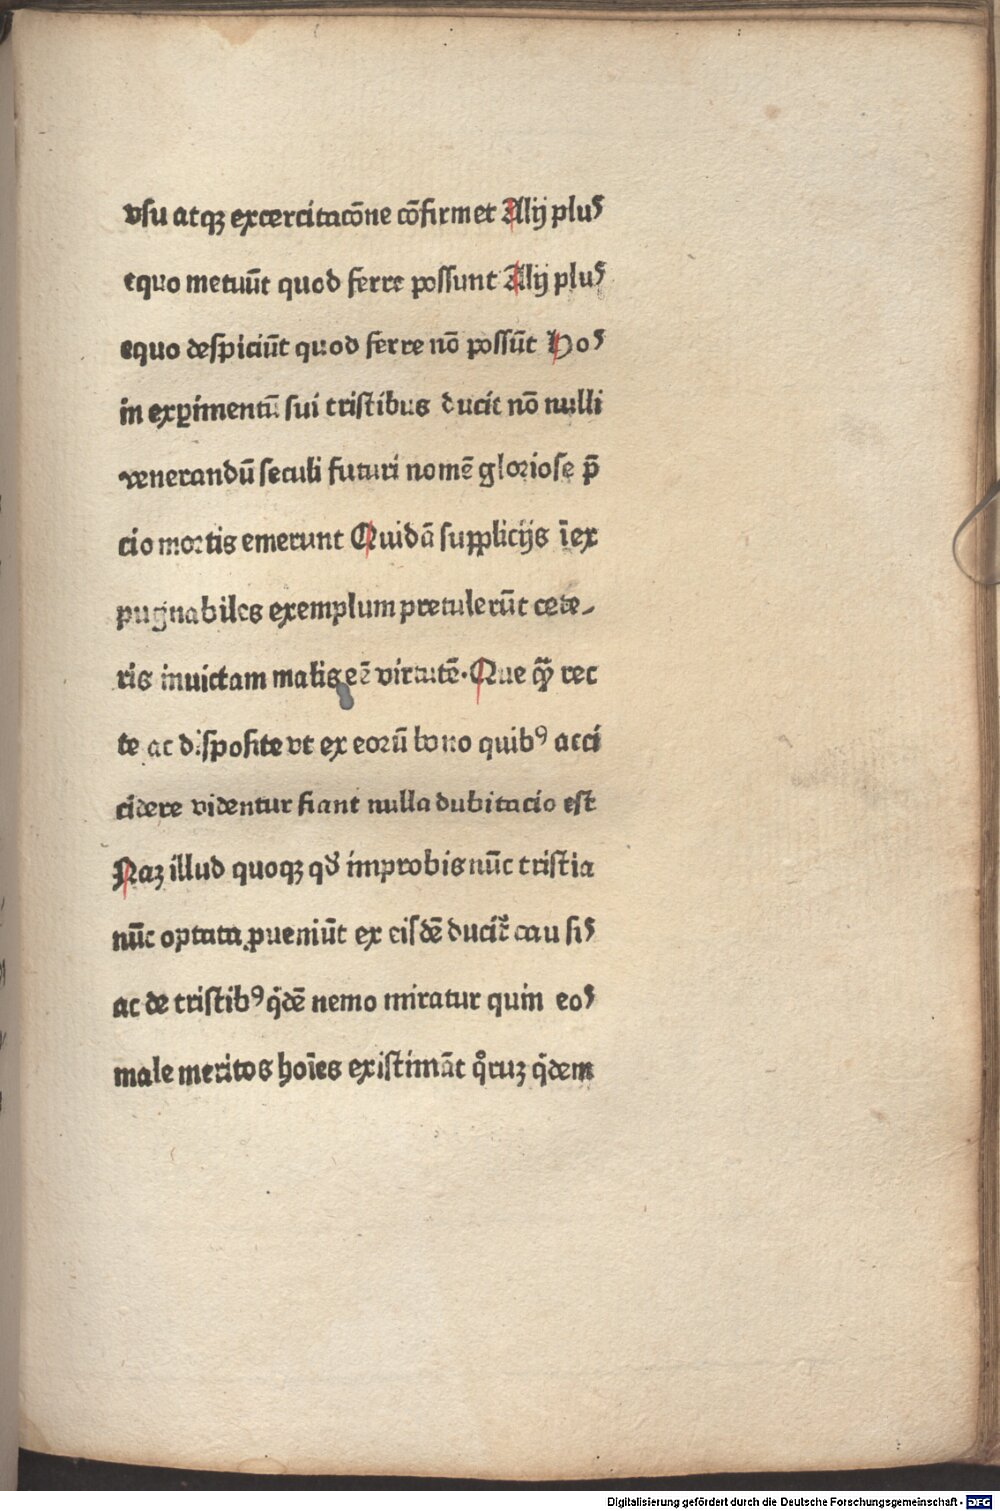 vsu atqꝫ excercitacōne cōfirmet Alij plus
equo metuūt quod ferre possunt Alij plus
equo despiciūt quod ferre nō possūt Hos
in exꝑimentū sui tristibus ducit nō nulli
venerandū seculi futuri nomē gloriose p̄
cio mortis emerunt Quidā supplicijs īex
pugnabiles exemplum pretulerūt cete-
ris inuictam malis eē virtutē. Que qͣꝫ rec
te ac disposite vt ex eorū bono quibꝰ acci
cidere videntur fiant nulla dubitacio est
Naꝫ illud quoqꝫ qd̓ improbis nūc tristia
nūc optata ꝓueniūt ex eisdē ducit̉ causis
ac de tristibꝰ qͥdē nemo miratur quin eos
male meritos hoīes existimāt qͦruꝫ qͥdem
Digitalisierung gefördert durch die Deutsche Forschungsgemeinschaft - DFG